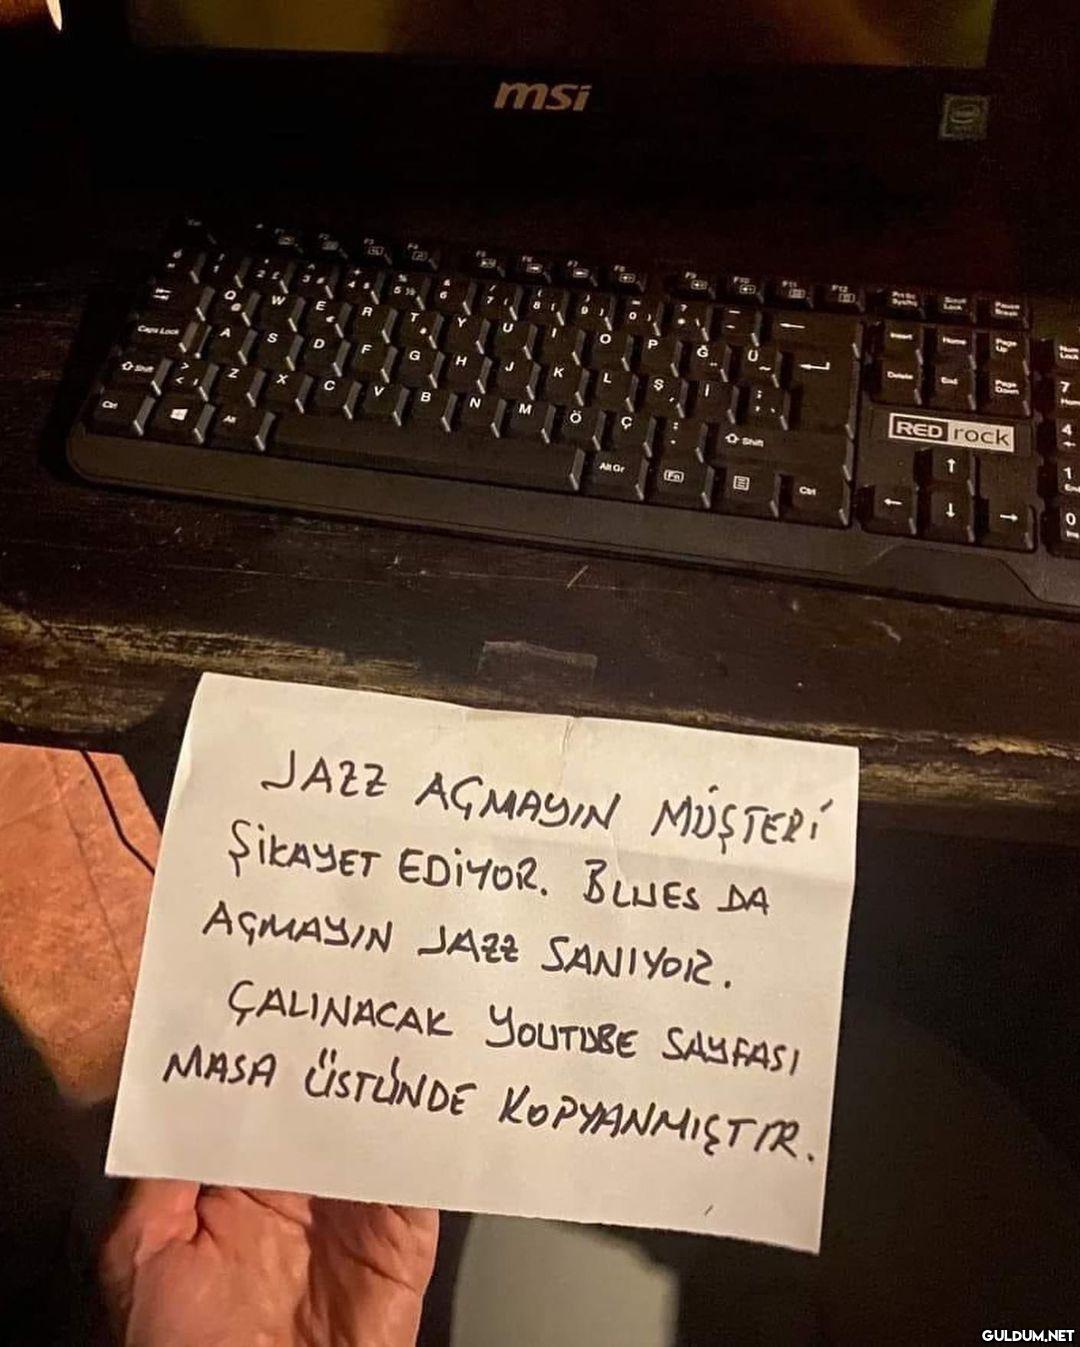 msi
REDrock
JAZZ AÇMAYIN MÜŞTERİ
ŞİKAYET EDİYOR. BLUES DA
AÇMAYIN JAZZ SANIYOR.
ÇALINACAK YOUTUBE SAYFASI
MASA ÜSTÜNDE KOPYANMIŞTIR.
GULDUM.NET